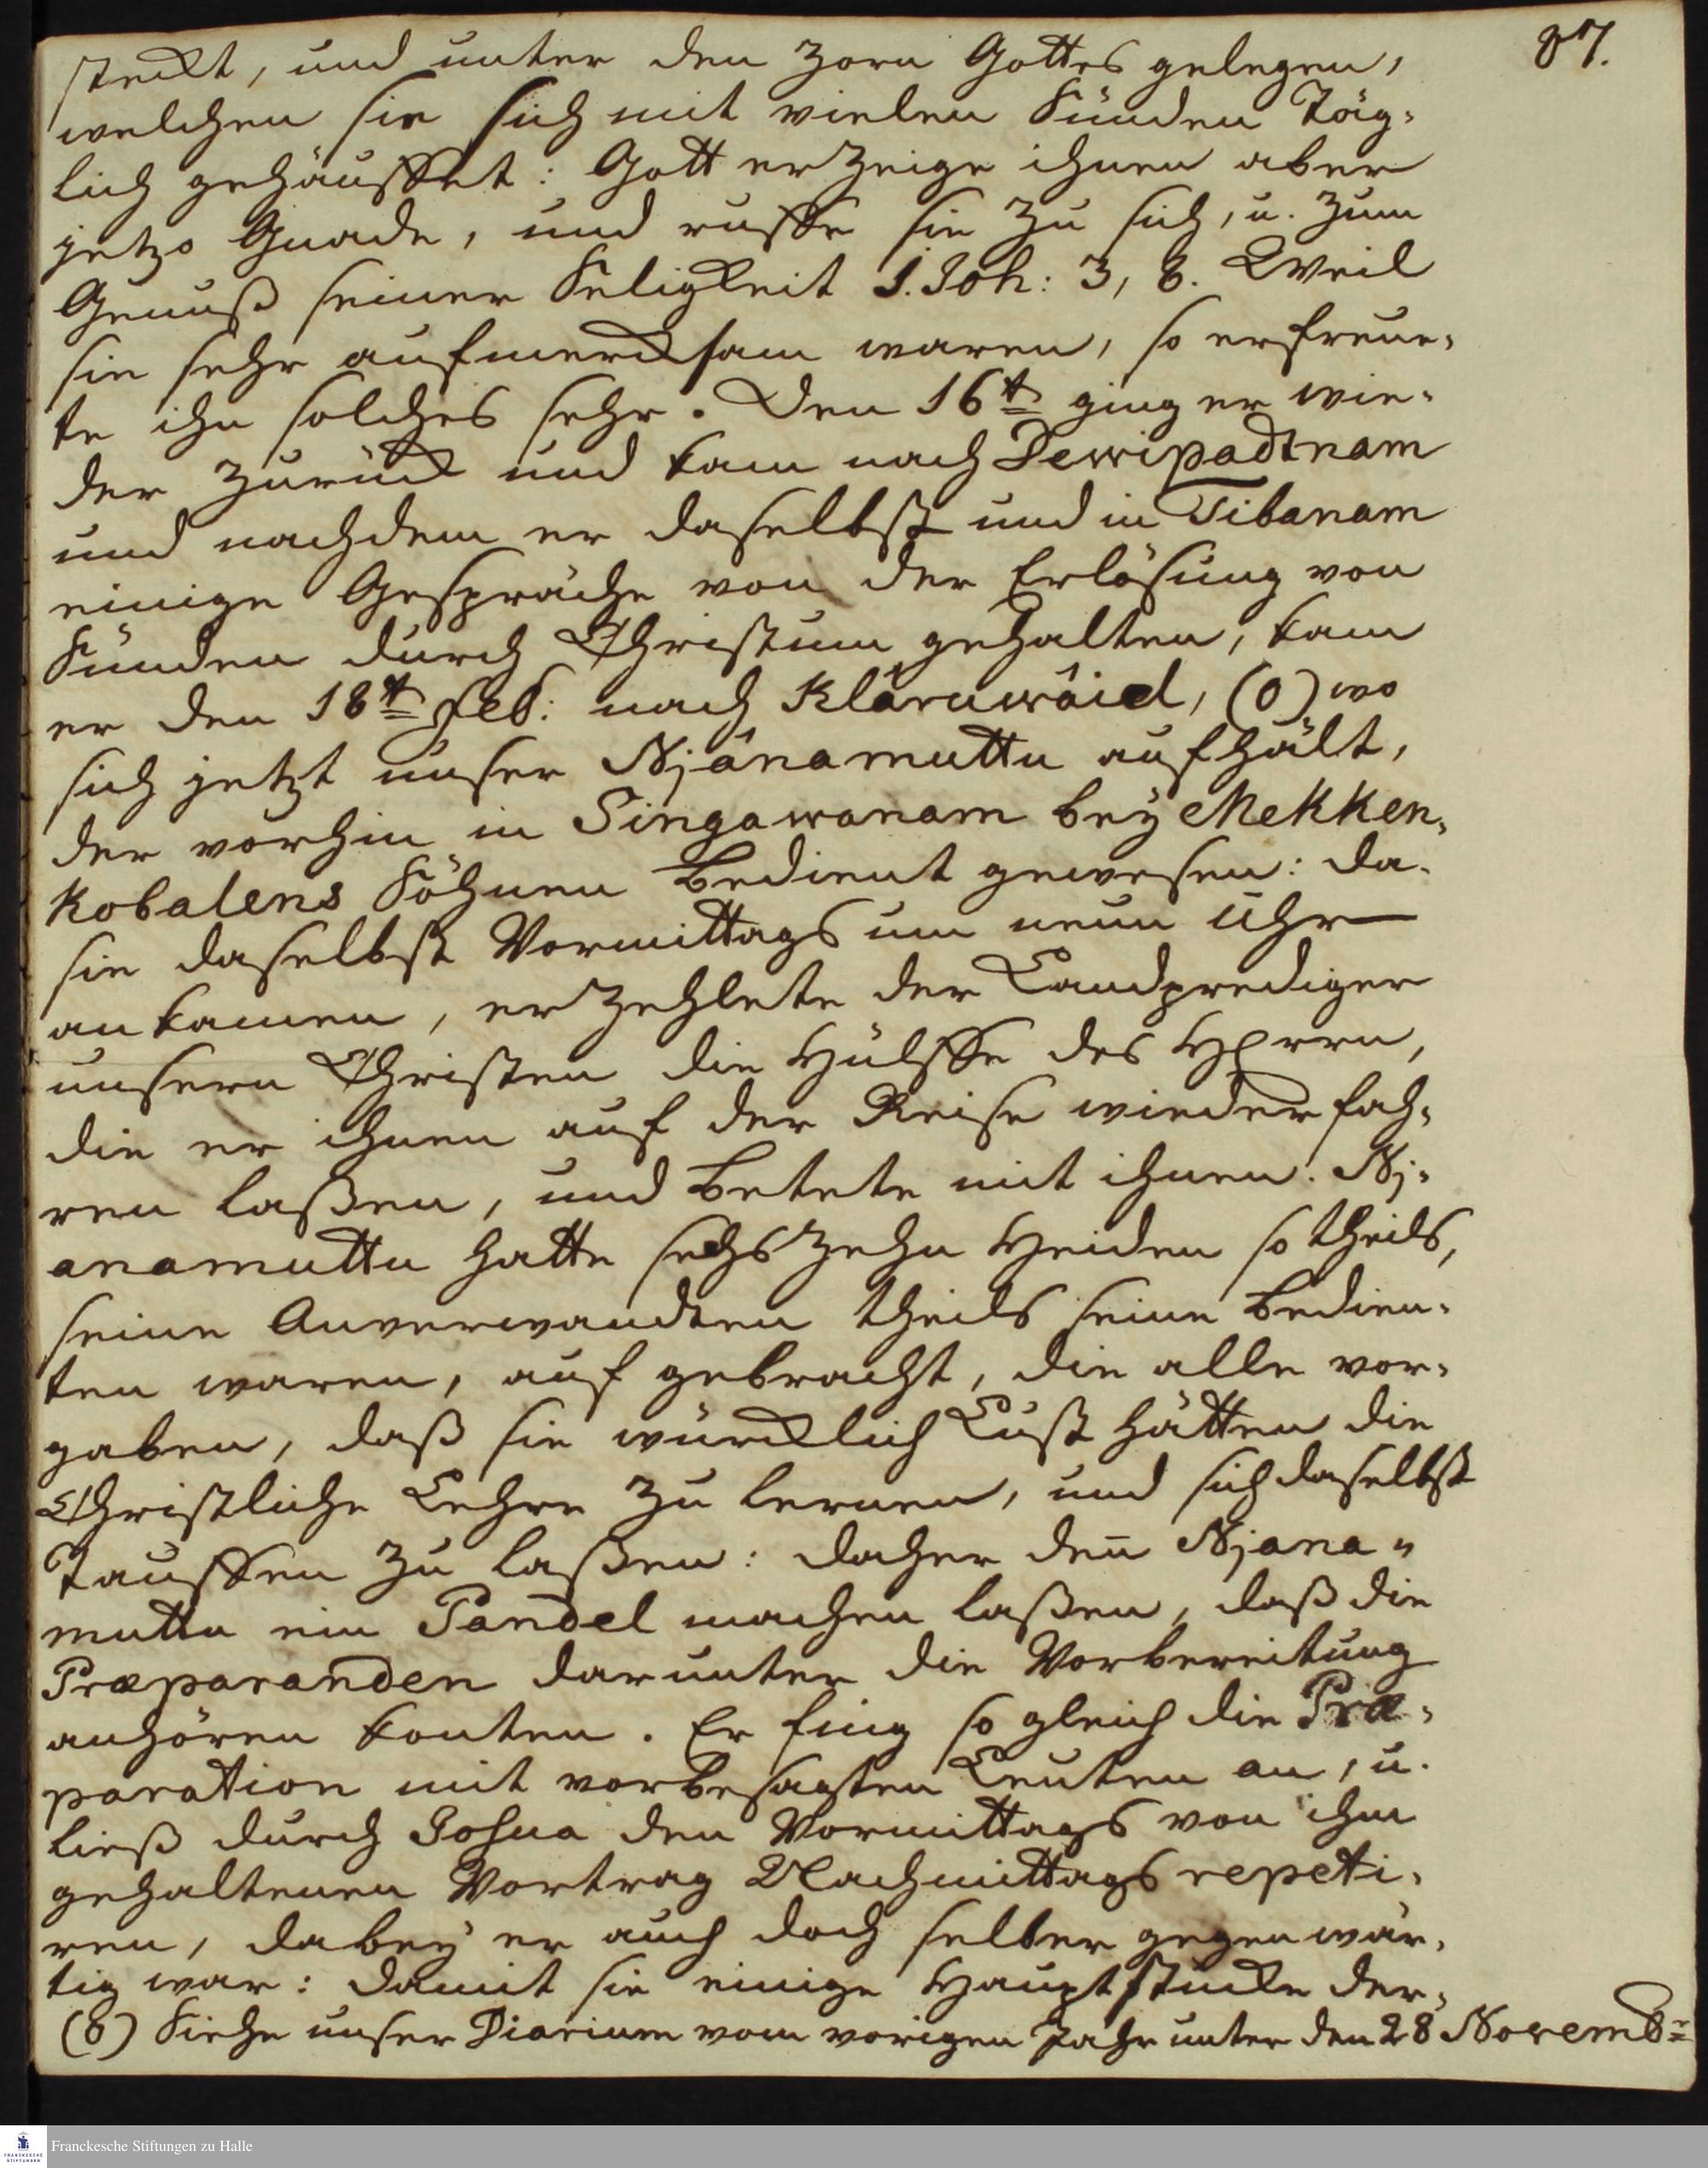 87.
steckt, und unter den Zorn Gottes gelegen,
welchen sie sich mit vielen Sünden Täg-
lich gehäuffet: Gott erzeige ihnen aber
jetzo Gnade, und ruffe sie zu sich, u. zum
Genuß seiner Seligkeit 1. Joh: 3, 8. Weil
sie sehr aufmercksam waren, so erfreue-
te ihn solches sehr. Den 16t ging er wie-
der zurück und kam nach Dewipadtnam
und nachdem er daselbst und in Tibanam
einige Gespräche von der Erlösung von
Sünden durch Christum gehalten, kam
er den 18t Feb: nach Klâruwâiel, (o) wo
sich jetzt unser Njânamuttu aufhält,
der vorhin in Singawanam bey Mekken-
kobalens Söhnen bedient gewesen: da
sie daselbst Vormittags um neun Uhr
ankamen, erzehlete der Landprediger
unsern Christen die Hülffe des HErrn,
die er ihnen auf der Reise wiederfah-
ren laßen, und betete mit ihnen. Nj-
anamuttu hatte sechszehn Heiden so theils,
seine Anverwandten theils seine Bedien-
ten waren, auf gebracht, die alle vor-
gaben, daß sie würcklich Lust hätten die
Christliche Lehre zu lernen, und sich daselbst
Tauffen zu laßen: daher den̅ Njana-
muttu ein Pandel machen laßen, daß die
Præparanden darunter die Vorbereitung
anhören konten. Er fing so gleich die Præ-
paration mit vorbesagten Leuten an, u.
ließ durch Josua den Vormittags von ihm
gehaltenen Vortrag Nachmittags repeti-
ren, dabey er auch doch selber gegenwär-
tig war: damit sie einige Hauptstücke der-
(o) Siehe unser Diarium vom vorigen Jahr unter den 28 Novembr
Franckesche Stiftungen zu Halle